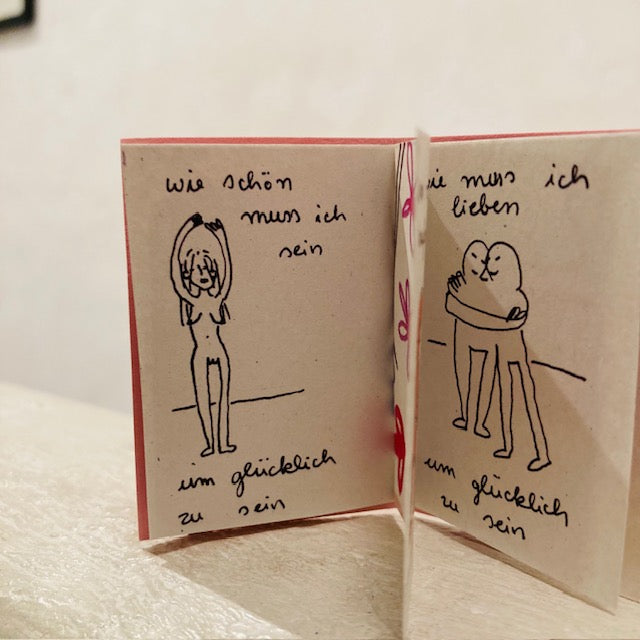 wie schön
muss ich
sein
um glücklich
zu sein
muss ich
lieben
um glücklich
zu sein